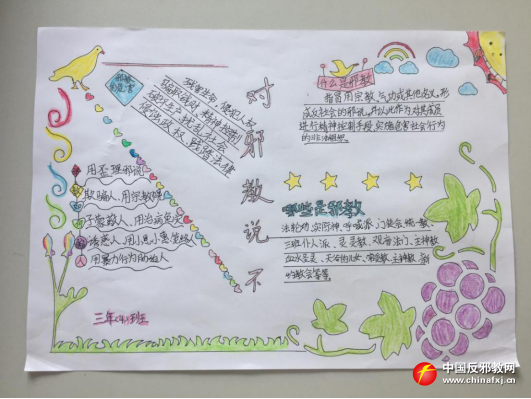 对邪教说不
邪教的危害
残害生命，侵犯人权
骗取钱财，精神控制
破坏生产，扰乱社会
侵蚀政权，践踏法律
什么是邪教
指冒用宗教、气功或其他名义，形
成反社会的邪说，并以此作为对其成员
进行精神控制手段，实施危害社会行为
的非法组织。
用歪理邪说
欺骗人、用宗教
人、用治病免灾
诱惑人、用小恩小惠笼络人
用暴力行为胁迫人
哪些是邪教
法轮功、实际神、呼喊派、门徒会、统一教、
三班仆人派、灵灵教、观音法门、主神教
血水圣灵、天父的儿女、
的教会等等
三年（4）班
中国反邪教网
www.chinafxj.cn